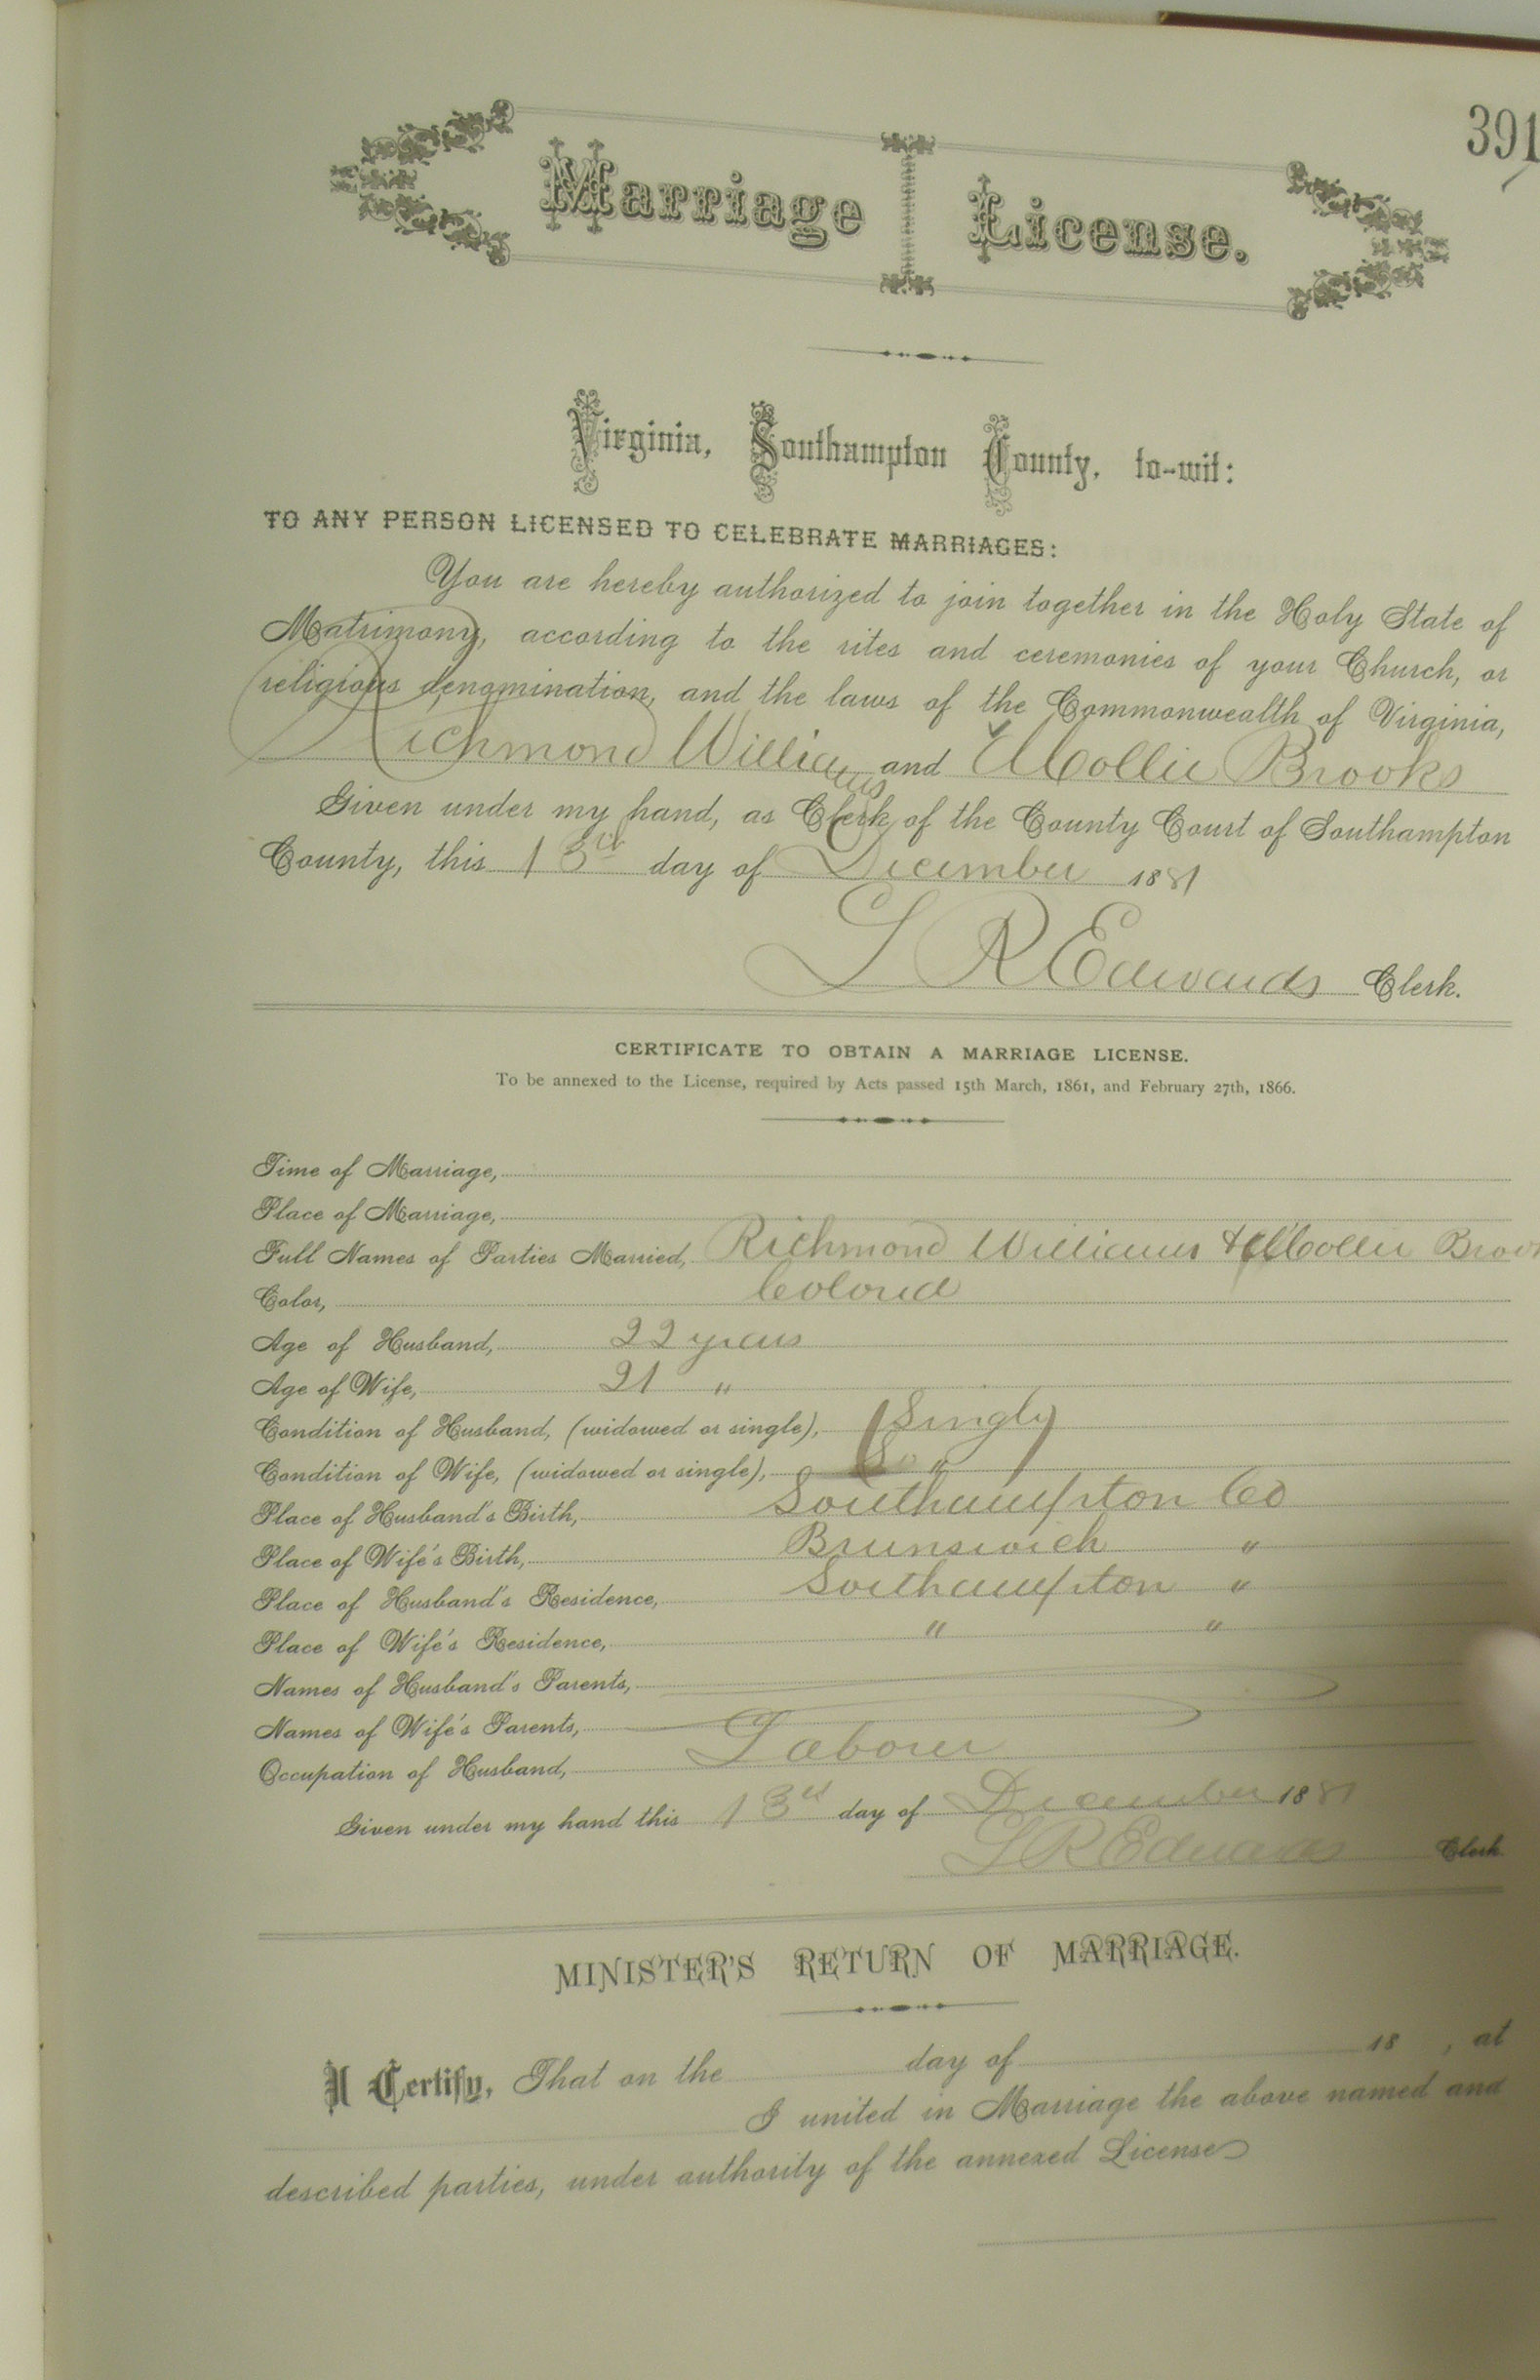 391
Marriage License.
Virginia, Southampton County, to-wit:
TO ANY PERSON LICENSED TO CELEBRATE MARRIAGES:
You are hereby authorized to join together in the Holy State of
Matrimony, according to the rites and ceremonies of your Church, or
religious denomination, and the laws of the Commonwealth of Virginia,
Richmond Williams and Mollie Brooks
Given under my hand, as Clerk of the County Court of Southampton
County, this 13th day of December 1881
L R Edwards Clerk.
CERTIFICATE TO OBTAIN A MARRIAGE LICENSE.
To be annexed to the License, required by Acts passed 15th March, 1861, and February 27th, 1866.
Time of Marriage,
Place of Marriage,
Full Names of Parties Married, Richmond Williams & Mollie Broo
Color, Colored
Age of Husband, 22 years
Age of Wife, 21 "
Condition of Husband, (widowed or single), Single
Condition of Wife, (widowed or single), "
Place of Husband's Birth, Southampton Co
Place of Wife's Birth, Brunswick "
Place of Husband's Residence, Southampton "
Place of Wife's Residence, " "
Names of Husband's Parents,
Names of Wife's Parents,
Occupation of Husband, Laborer
Given under my hand this 13th day of December 1881
L R Edwards Clerk
MINISTER'S RETURN OF MARRIAGE.
I Certify, That on the day of 18 , at
I united in Marriage the above named and
described parties, under authority of the annexed License